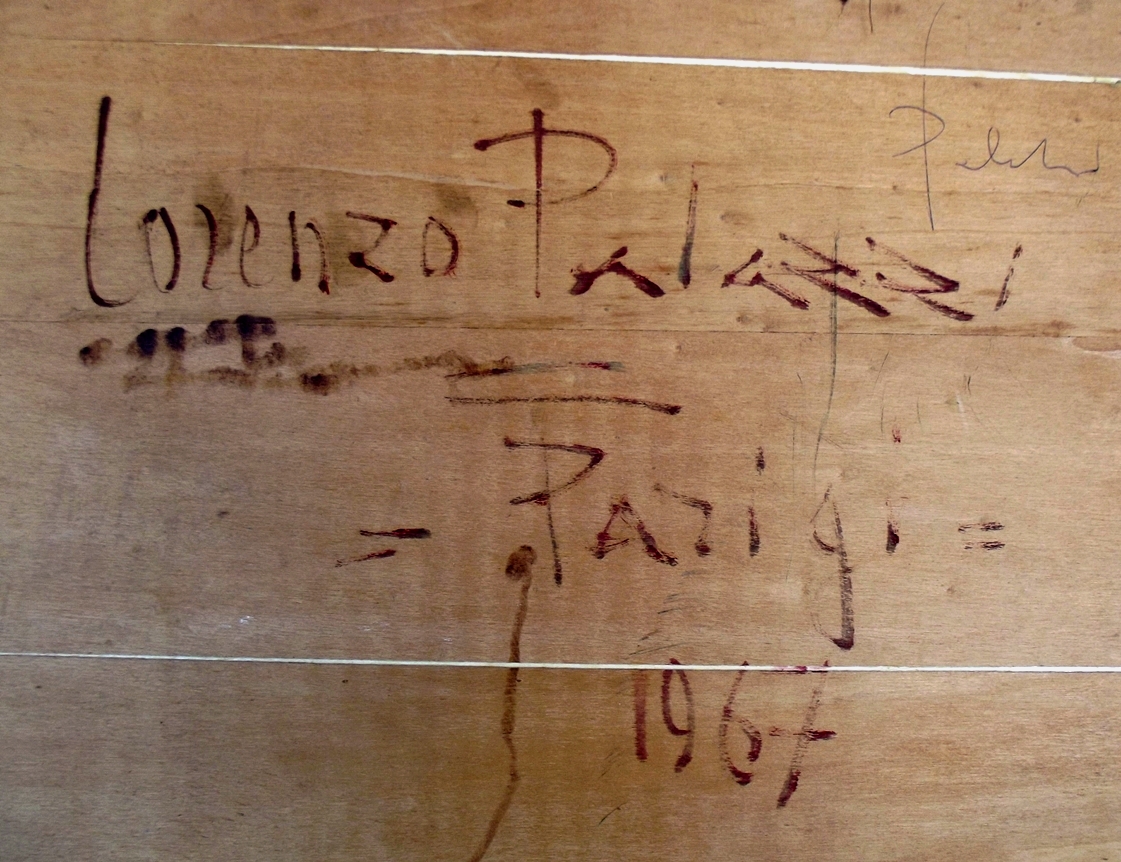 Lorenzo Palazzi
= Parigi =
1967